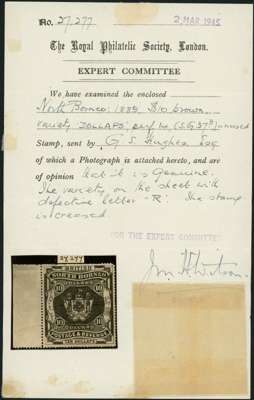 No. 27,277
2 MAR 1945
The Royal Philatelic Society, London.
EXPERT COMMITTEE
We have examined the enclosed
North Borneo: 1889 $10 brown
variety "DOLLAPS", perf 14, (S.G 50b) unused
Stamp, sent by G. S. Hughes Esq
of which a Photograph is attached hereto, and are
of opinion that it is genuine.
The variety on the sheet with
defective letter -R'. The stamp
is creased.
FOR THE EXPERT COMMITTEE
27,277
BRITISH
NORTH BORNEO
10 10
10 10
POSTAGE & REVENUE
TEN DOLLARS